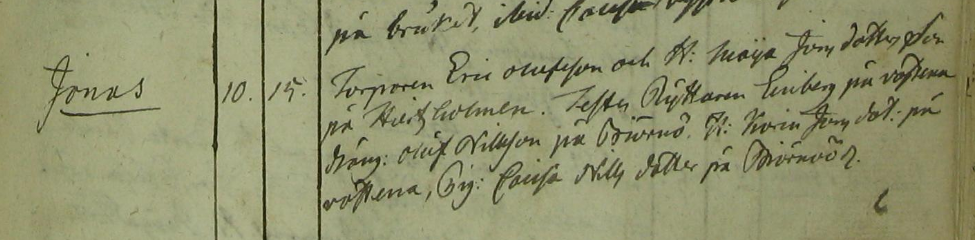 på bruket, ibid: Caisa
Jonas 10. 15. Torparen Eric Olufsson och H: Maija Jons dotter Son
på Hiertholmen. Testes Ryttaren Enberg på våstena
dräng: Oluf Nillsson på Biörnö. H: Karin Jons dot: på
våstena, Pig: Caisa Nills dotter på Biörnöö.